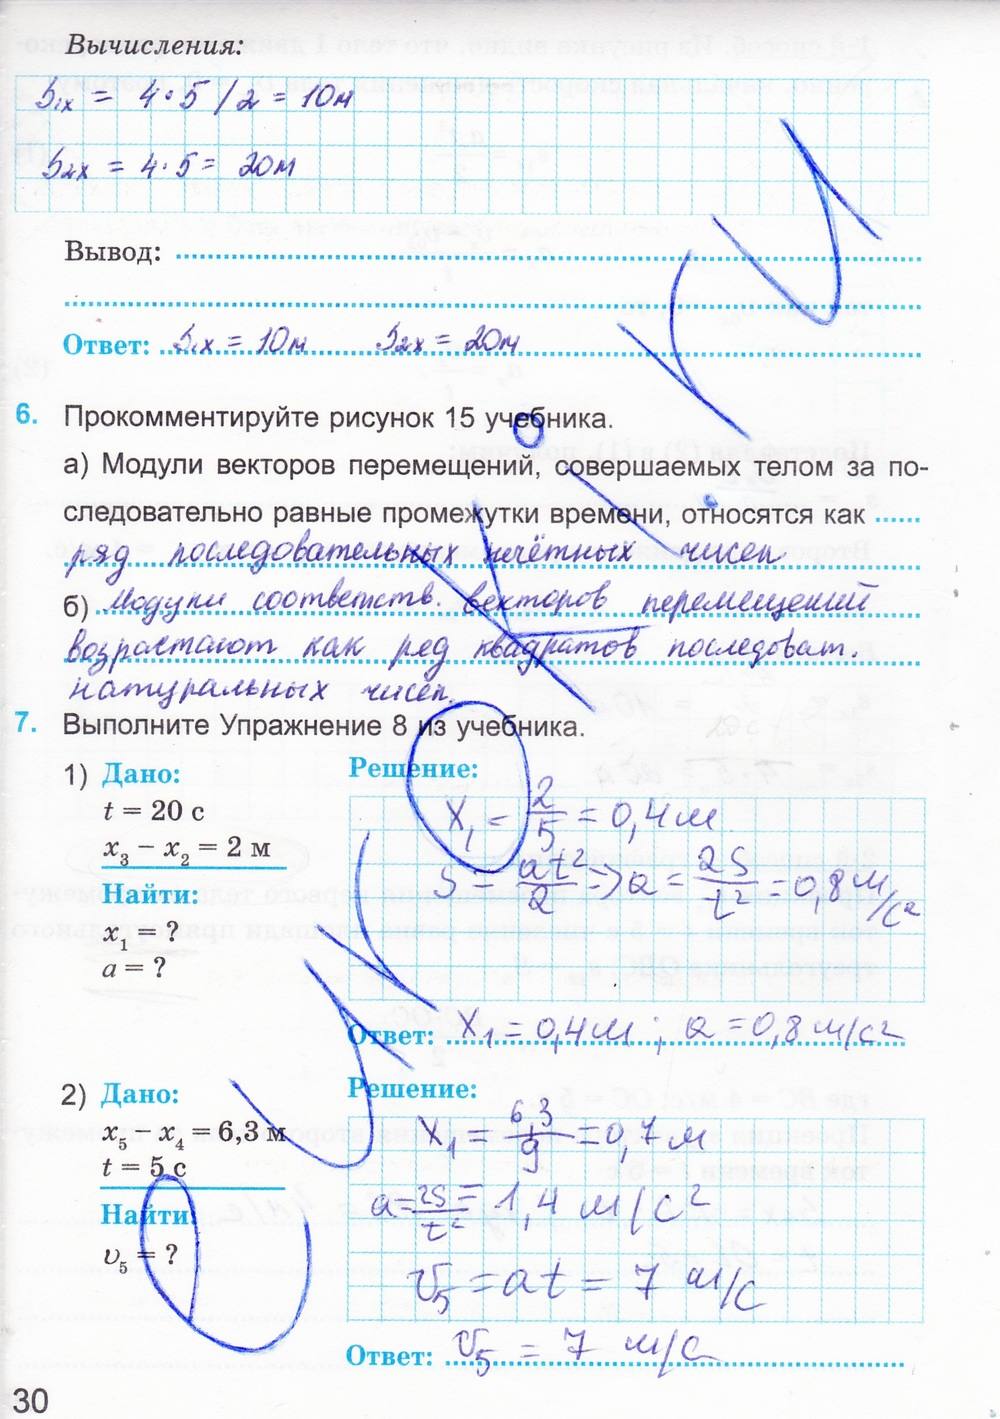 Вычисления:
S₁ₓ = 4·5/2 = 10м
S₂ₓ = 4·5 = 20м
Вывод:
Ответ: S₁ₓ = 10м S₂ₓ = 20м
6. Прокомментируйте рисунок 15 учебника.
а) Модули векторов перемещений, совершаемых телом за по-
следовательно равные промежутки времени, относятся как
ряд последовательных нечётных чисел
б) Модули соответств. векторов перемещений
возрастают как ряд квадратов последоват.
натуральных чисел.
7. Выполните Упражнение 8 из учебника.
1) Дано:
t = 20 с
x₃ − x₂ = 2 м
Найти:
x₁ = ?
a = ?
Решение:
X₁ = 2/5 = 0,4 м
S = at²/2 => a = 2S/t² = 0,8 м/с²
Ответ: X₁ = 0,4 м ; a = 0,8 м/с²
2) Дано:
x₅ − x₄ = 6,3 м
t = 5 с
Найти:
υ₅ = ?
Решение:
X₁ 6,3/9 = 0,7 м
a = 2S/t² = 1,4 м/с²
υ₅ = at = 7 м/с
Ответ: υ₅ = 7 м/с
30